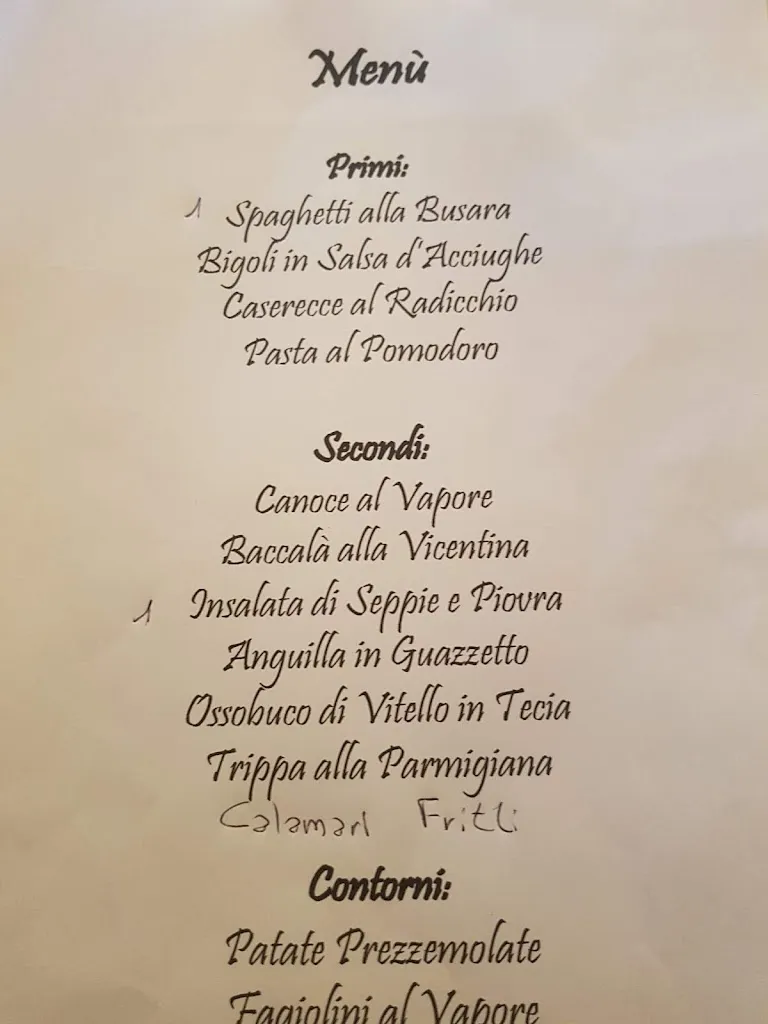 Menù
Primi:
1 Spaghetti alla Busara
Bigoli in Salsa d'Acciughe
Caserecce al Radicchio
Pasta al Pomodoro
Secondi:
Canoce al Vapore
Baccalà alla Vicentina
1 Insalata di Seppie e Piovra
Anguilla in Guazzetto
Ossobuco di Vitello in Tecia
Trippa alla Parmigiana
Calamari Fritti
Contorni:
Patate Prezzemolate
Fagiolini al Vapore